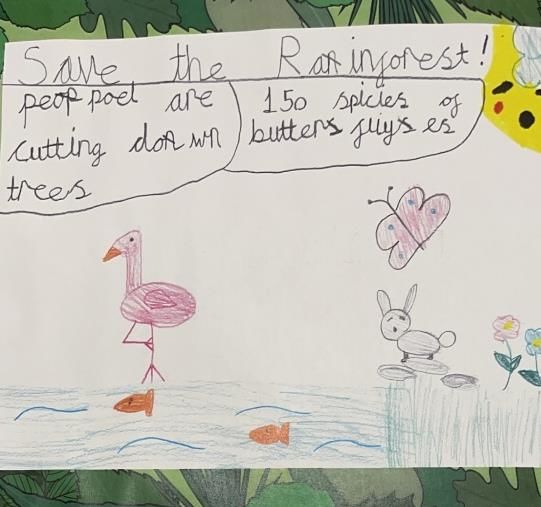 Save the Rainforest!
peop poel are
cutting down
trees
150 spicies of
butters fliys es